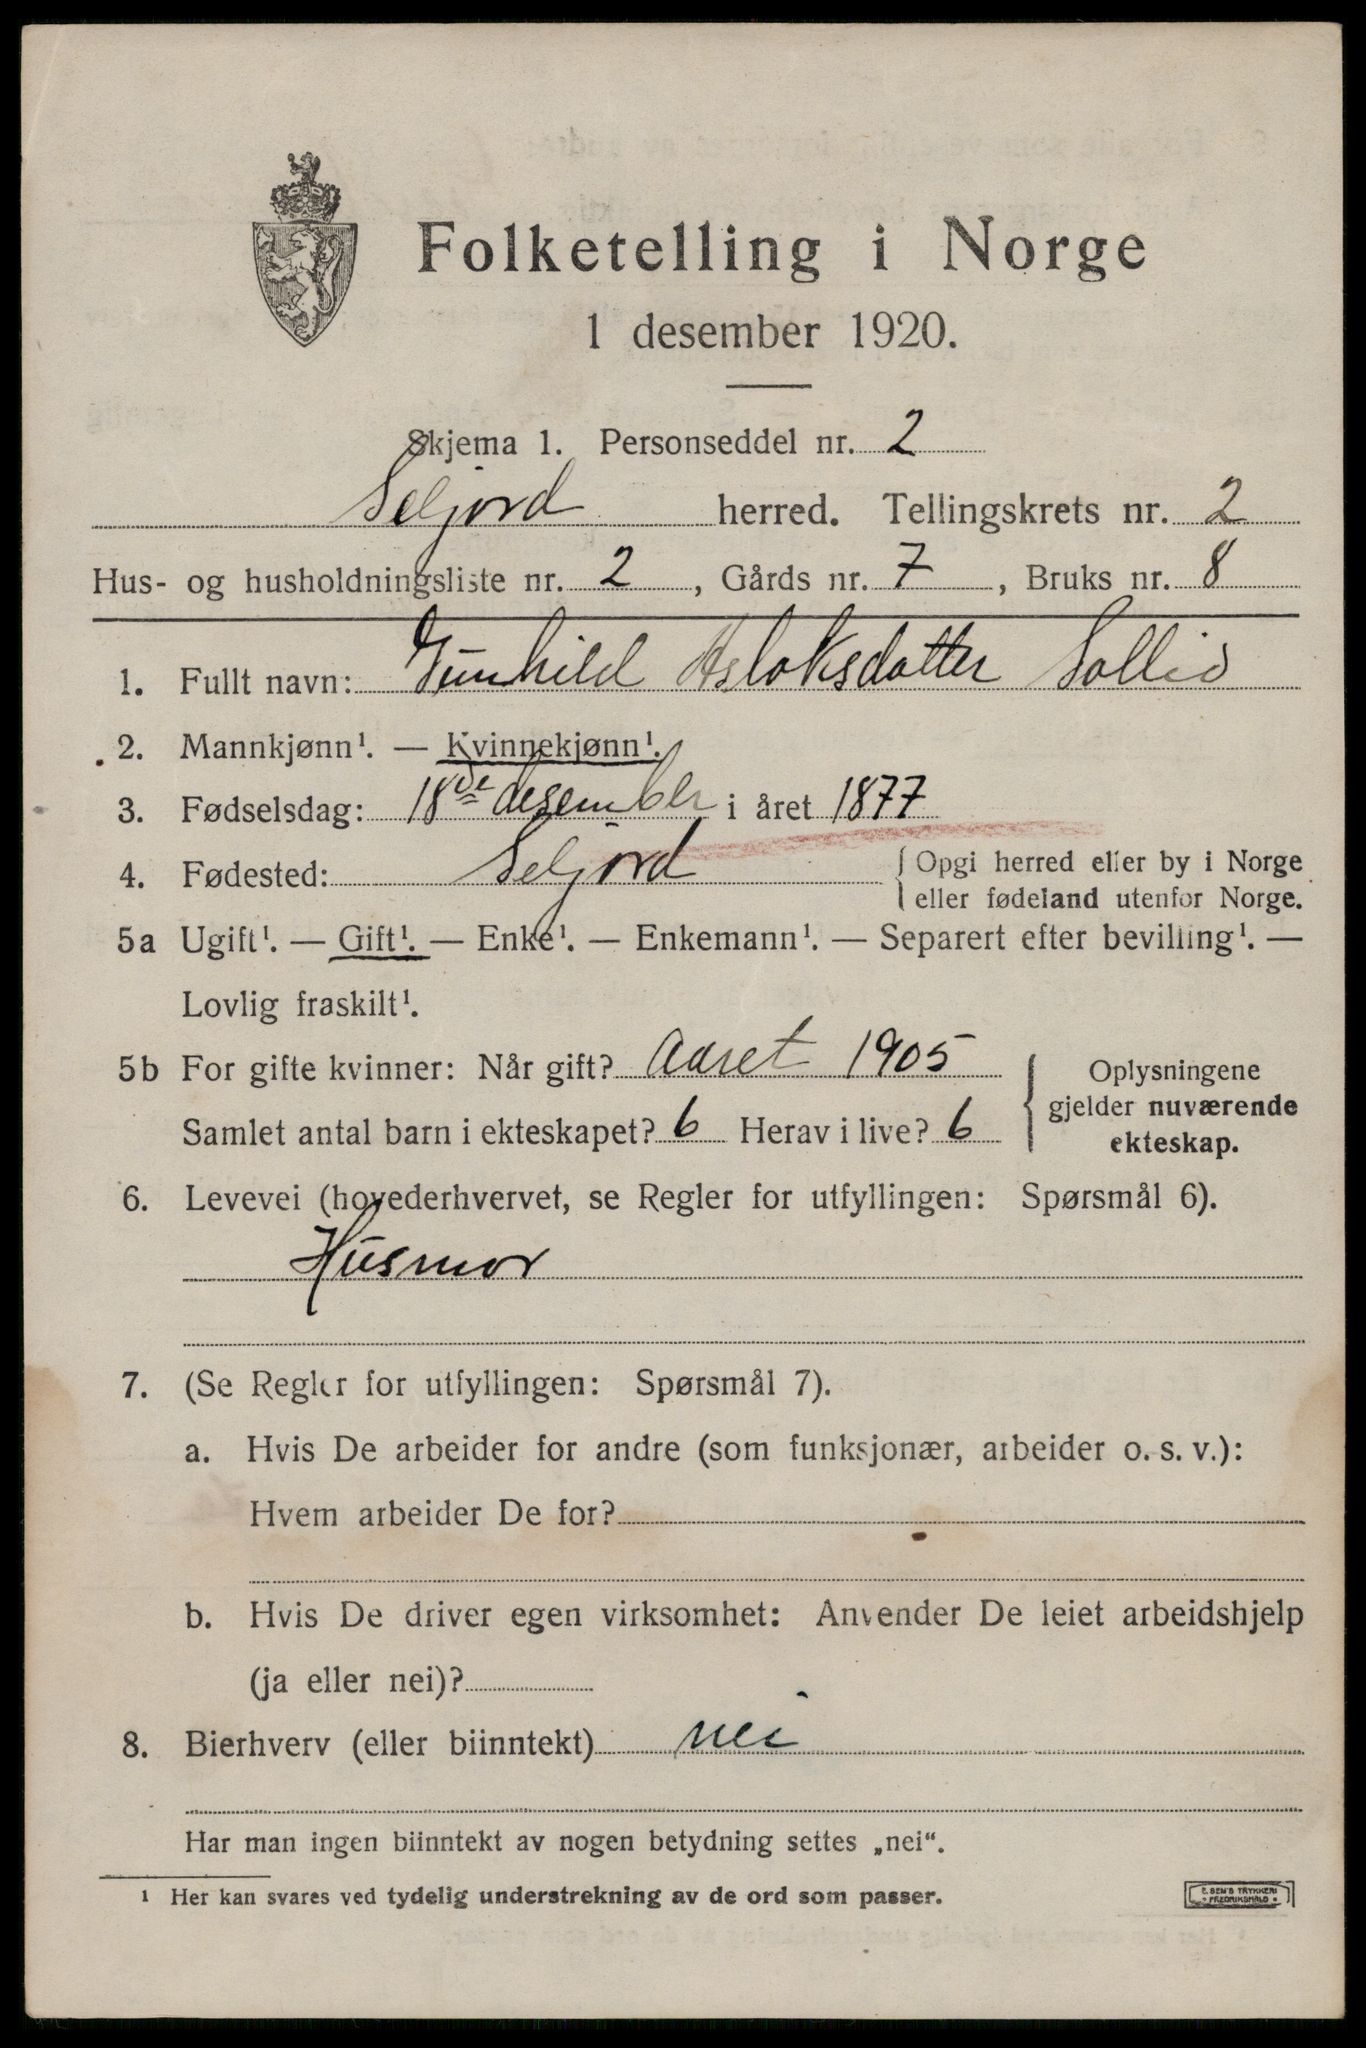 Folketelling i Norge
1 desember 1920.
Skjema 1. Personseddel nr. 2
Seljord herred. Tellingskrets nr. 2
Hus- og husholdningsliste nr. 2, Gårds nr. 7, Bruks nr. 8
1. Fullt navn: Gunhild Aslaksdatter Sollid
2. Mannkjønn¹. — Kvinnekjønn¹.
3. Fødselsdag: 18de desember i året 1877
4. Fødested: Seljord { Opgi herred eller by i Norge
eller fødeland utenfor Norge.
5a Ugift¹. — Gift¹. — Enke¹. — Enkemann¹. — Separert efter bevilling¹. —
Lovlig fraskilt¹.
5b For gifte kvinner: Når gift? Aaret 1905
Samlet antal barn i ekteskapet? 6 Herav i live? 6
{ Oplysningene
gjelder nuværende
ekteskap.
6. Levevei (hovederhvervet, se Regler for utfyllingen: Spørsmål 6).
Husmor
7. (Se Regler for utfyllingen: Spørsmål 7).
a. Hvis De arbeider for andre (som funksjonær, arbeider o. s. v.):
Hvem arbeider De for?
b. Hvis De driver egen virksomhet: Anvender De leiet arbeidshjelp
(ja eller nei)?
8. Bierhverv (eller biinntekt) nei
Har man ingen biinntekt av nogen betydning settes „nei“.
¹ Her kan svares ved tydelig understrekning av de ord som passer.
E. SEM'S TRYKKERI
FREDRIKSHALD